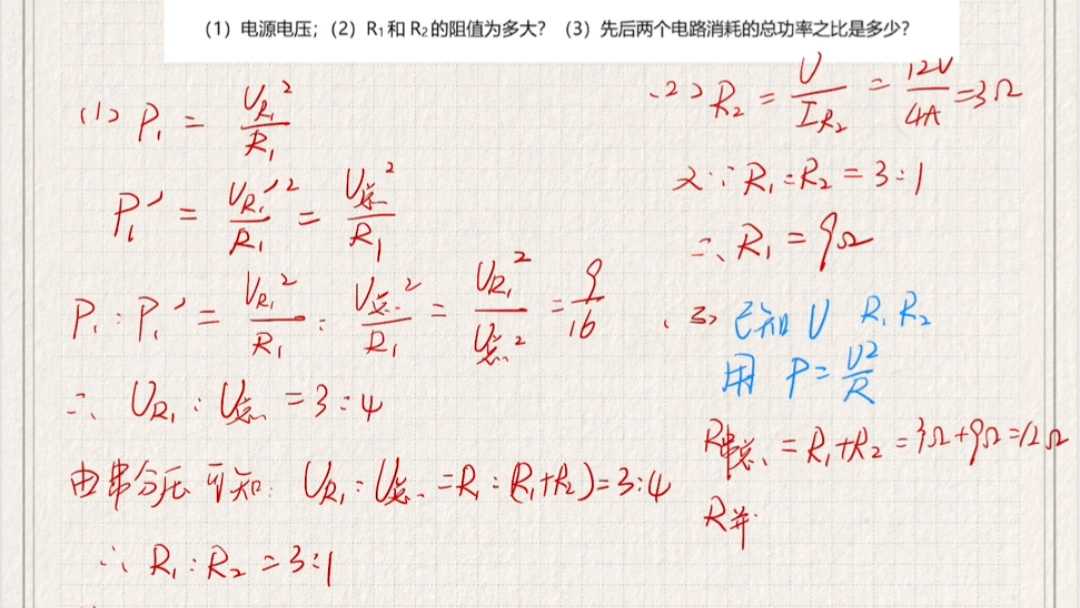 (1) 电源电压；(2) R₁和R₂的阻值为多大？ (3) 先后两个电路消耗的总功率之比是多少？
(1) P₁ = U_R₁² / R₁
P₁′ = U_R₁′² / R₁ = U总² / R₁
P₁ : P₁′ = U_R₁² / R₁ : U总² / R₁ = U_R₁² / U总² = 9/16
∴ U_R₁ : U总 = 3:4
由串分压可知: U_R₁ : U总 = R₁ : (R₁+R₂) = 3:4
∴ R₁ : R₂ = 3:1
(2) R₂ = U / I_R₂ = 12V / 4A = 3Ω
又∵ R₁ : R₂ = 3:1
∴ R₁ = 9Ω
(3) 已知 U R₁ R₂
用 P = U² / R
R串总 = R₁+R₂ = 3Ω+9Ω = 12Ω
R并